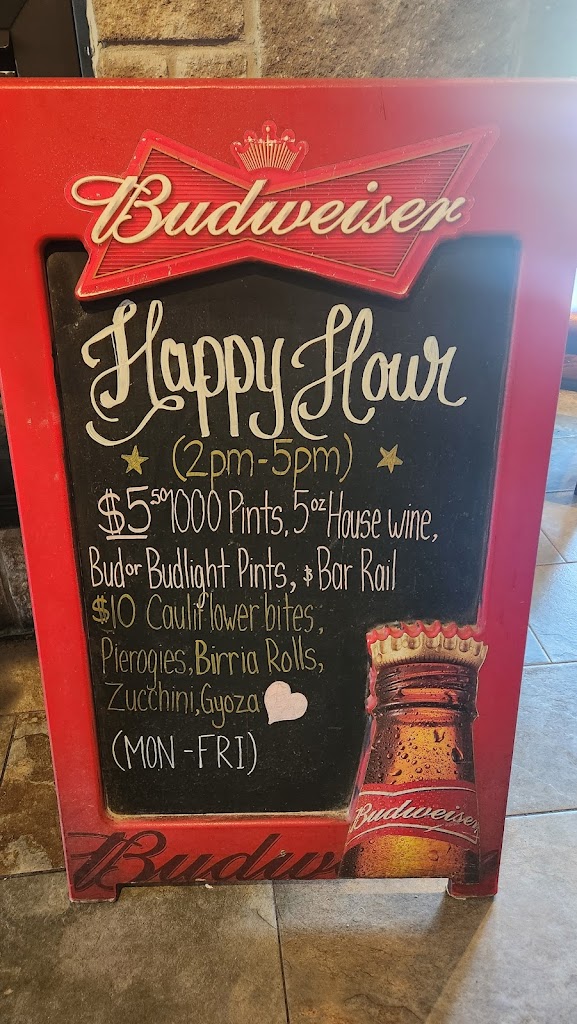 Budweiser
Happy Hour
(2pm-5pm)
$5.50 1000 Pints, 5oz House wine,
Bud or Budlight Pints, & Bar Rail
$10 Cauliflower bites,
Pierogies, Birria Rolls,
Zucchini, Gyoza
(MON-FRI)
Budweiser
Budw